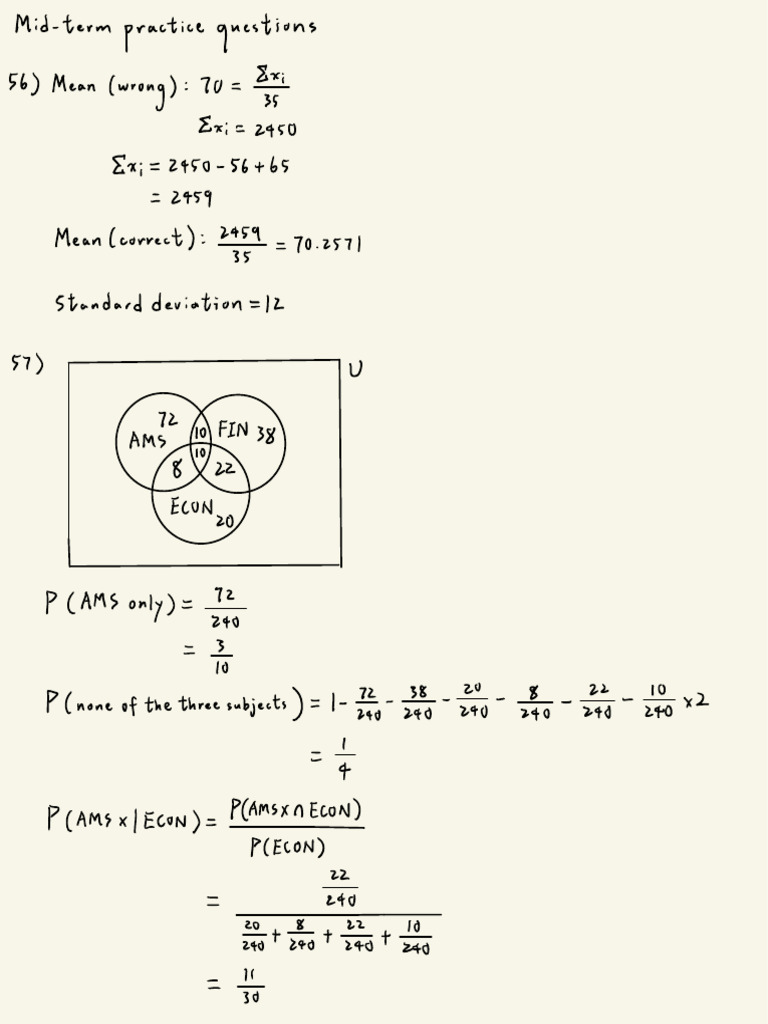 Mid-term practice questions
56) Mean (wrong): 70 = Σxi / 35
Σxi = 2450
Σxi = 2450 - 56 + 65
= 2459
Mean (correct): 2459 / 35 = 70.2571
Standard deviation = 12
57)
U
72
AMS
10
FIN 38
10
8
22
ECON
20
P(AMS only) = 72/240
= 3/10
P(none of the three subjects) = 1 - 72/240 - 38/240 - 20/240 - 8/240 - 22/240 - 10/240 x2
= 1/4
P(AMS x | ECON) = P(AMS x ∩ ECON) / P(ECON)
= 22/240 / 20/240 + 8/240 + 22/240 + 10/240
= 11/30